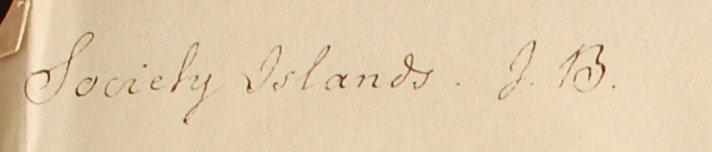 Society Islands. J. B.